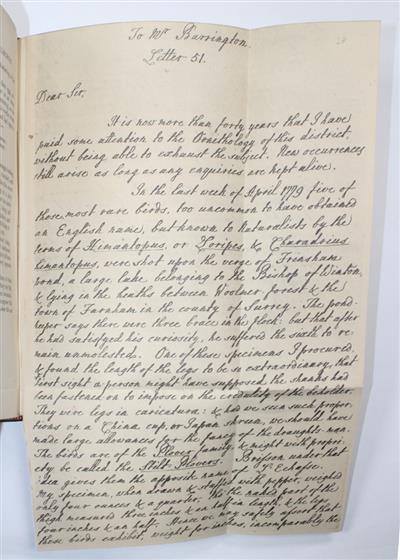 To Mr Barrington.
Letter 51.
Dear Sir,
It is now more than forty years that I have
paid some attention to the Ornithology of this district
without being able to exhaust the subject. New occurrences
still arise as long as any enquiries are kept alive.
In the last week of April 1779 five of
those most rare birds, too uncommon to have obtained
an English name, but known to Naturalists by the
terms of Himantopus, or Loripes, & Charadrius
himantopus, were shot upon the verge of Frensham
pond, a large lake belonging to the Bishop of Winton,
& lying in the heaths between Woolmer forest & the
town of Farnham in the county of Surrey. The pond-
keeper says there were three brace in the flock: but that after
he had satisfyed his curiosity, he suffered the sixth to re-
main unmolested. One of these specimens I procured,
& found the length of the legs to be so extraordinary, that
first sight a person might have supposed the shanks had
been fastened on to impose on the credulity of the beholder.
They were legs in caricatura: & had we seen such propor-
tions on a China cup, or Japan skreen, we should have
made large allowances for the fancy of the draughts-man.
The birds are of the Plover family, & might with propri-
ety be called the Stilt Plovers. Brysson under that
idea gives them the apposite name of l'Echasse.
My specimen, when drawn & stuffed with pepper, weighed
only four ounces & a quarter, tho' the naked part of the
thigh measured three inches & an half in length, & the legs
four inches & an half. Hence we may safely assert that
these birds exhibit, weight for inches, incomparably the